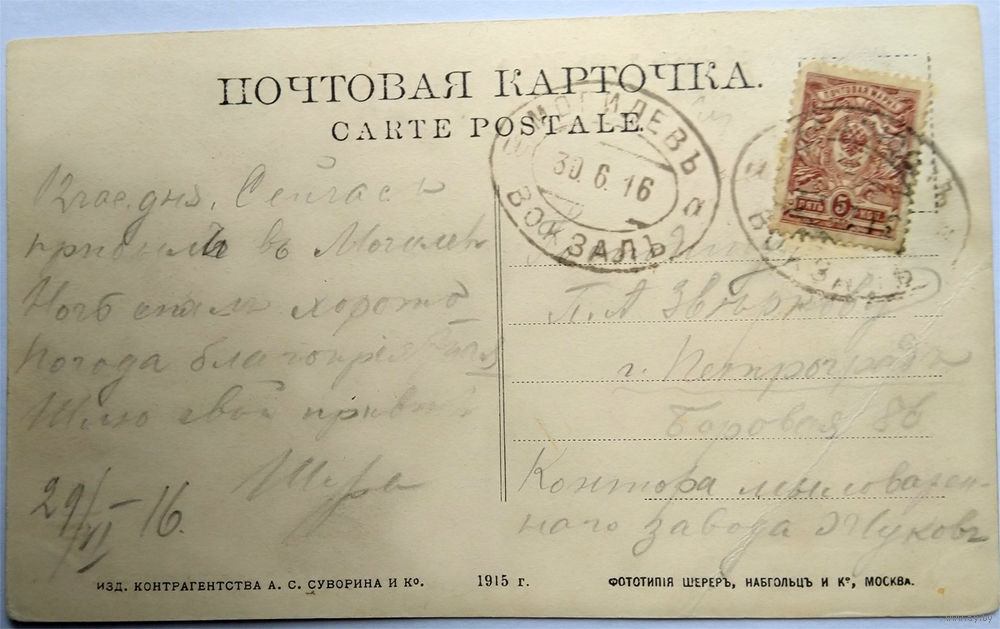 ПОЧТОВАЯ КАРТОЧКА.
CARTE POSTALE.
МОГИЛЕВЪ
30.6.16
ВОКЗАЛЪ
ПОЧТОВАЯ МАРКА
ПЯТЬ 5 КОП.
ВОКЗАЛЪ
12 час. дня. Сейчас
прибыли въ Могилевъ
Ночь спали хорошо
Погода благоприятная
Шлю свой приветъ
Шура
29/VI–16.
П. А. Звѣркову
г. Петроградъ
Боровая 86
Контора мыловарен-
наго завода Жукова
ИЗД. КОНТРАГЕНТСТВА А. С. СУВОРИНА И Ко.
1915 г.
ФОТОТИПІЯ ШЕРЕРЪ, НАБГОЛЬЦЪ И Ко, МОСКВА.